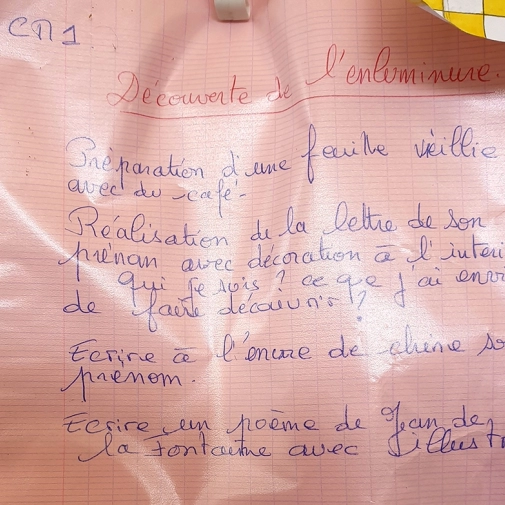 CM1
Découverte de l'enluminure.
Préparation d'une feuille vieillie
avec du café.
Réalisation de la lettre de son
prénom avec décoration à l'interi
qui je suis ? ce que j'ai envi
de faire découvrir ?
Ecrire à l'encre de chine so
prénom.
Ecrire un poème de Jean de
la Fontaine avec illustr